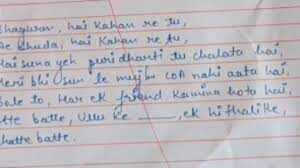 Bhagwan, hai Kahan re tu,
ae khuda, hai Kahan re tu,
Hai suna yeh puri dharti tu chalata hai,
Meri bhi sun le mujko nahi aata hai,
Bole to, Har ek friend Kamina hota hai,
Ullu ke ___, ek hi thalike,
chatte batte.